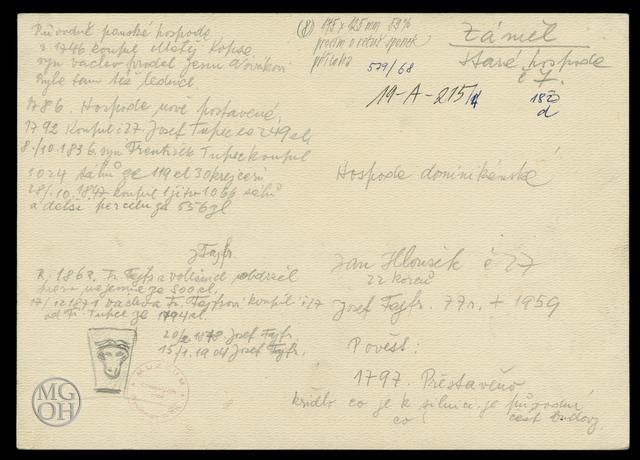 Původně panské hospoda
r. 1746 koupil Matěj Kopsa
syn václav prodal Janu Novákovi
byla tam též lednice.
1786. Hospoda nově postavená,
1792 Koupil č 27. Josef Tupec za 249 zl,
8./10. 1836. syn František Tupec koupil
1024 sáhů ze 119 zl 30 krejcarů
28/. 10. 1847 koupil 1 jitro 1066 sáhů
a delší parcelu za 556 zl
z Fajfr.
R. 1863. Fr. Fajfr a
za 500 zl.
17/12 1871 václava Fr. Fajfrovi koupil č 27
od Fr. Tupce ze 1794 zl.
20/2 1878 Josef Fajfr.
15/1. 1904 Josef Fajfr.
MUZEUM
MG
OH
(8) 175 x 125 mm 59%
příloha
579/68
19-A-215/d
Záměl
staré hospoda
č 7.
1820
d
Hospoda dominikánská
Jan Hlousek č 27
22 korců
Josef Fajfr. 77r. + 1959
Pověst:
1797. Přestavěno
křídlo co je k silnici, je původní
co část budovy